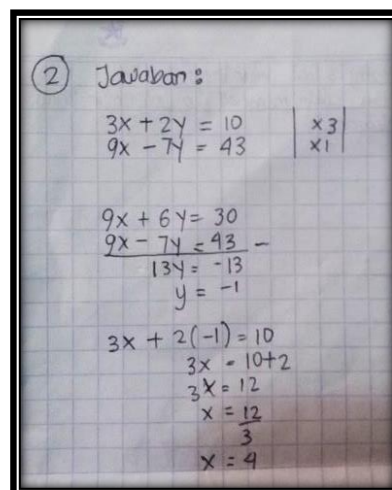 2 Jawaban :
3x + 2y = 10 | x3 |
9x - 7y = 43 | x1 |
9x + 6y = 30
9x - 7y = 43 -
13y = -13
y = -1
3x + 2(-1) = 10
3x = 10+2
3x = 12
x = 12/3
x = 4